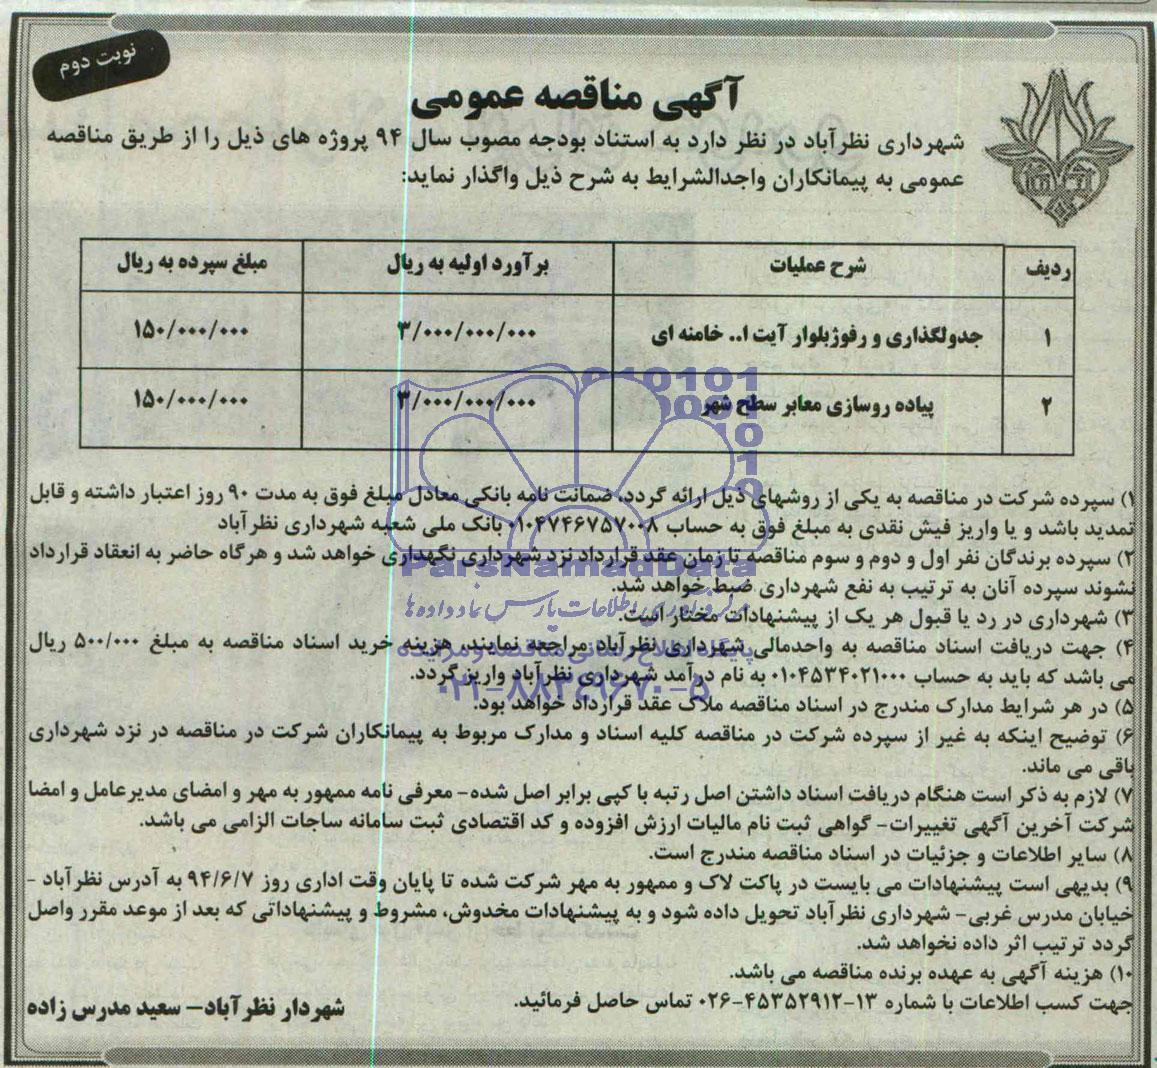 نوبت دوم
آگهی مناقصه عمومی
شهرداری نظرآباد در نظر دارد به استناد بودجه مصوب سال ۹۴ پروژه های ذیل را از طریق مناقصه
عمومی به پیمانکاران واجدالشرایط به شرح ذیل واگذار نماید:
ردیف شرح عملیات برآورد اولیه به ریال مبلغ سپرده به ریال
۱ جدولگذاری و رفوژبلوار آیت ا.. خامنه ای ۳/۰۰۰/۰۰۰/۰۰۰ ۱۵۰/۰۰۰/۰۰۰
۲ پیاده روسازی معابر سطح شهر ۳/۰۰۰/۰۰۰/۰۰۰ ۱۵۰/۰۰۰/۰۰۰
۱) سپرده شرکت در مناقصه به یکی از روشهای ذیل ارائه گردد، ضمانت نامه بانکی معادل مبلغ فوق به مدت ۹۰ روز اعتبار داشته و قابل
تمدید باشد و یا واریز فیش نقدی به مبلغ فوق به حساب ۰۱۰۴۷۴۶۷۵۷۰۰۸ بانک ملی شعبه شهرداری نظرآباد
۲) سپرده برندگان نفر اول و دوم و سوم مناقصه تا زمان عقد قرارداد نزد شهرداری نگهداری خواهد شد و هرگاه حاضر به انعقاد قرارداد
نشوند سپرده آنان به ترتیب به نفع شهرداری ضبط خواهد شد.
۳) شهرداری در رد یا قبول هر یک از پیشنهادات مختار است.
۴) جهت دریافت اسناد مناقصه به واحدمالی شهرداری نظرآباد مراجعه نمایند، هزینه خرید اسناد مناقصه به مبلغ ۵۰۰/۰۰۰ ریال
می باشد که باید به حساب ۰۱۰۴۵۳۴۰۲۱۰۰۰ به نام درآمد شهرداری نظرآباد واریز گردد.
۵) در هر شرایط مدارک مندرج در اسناد مناقصه ملاک عقد قرارداد خواهد بود.
۶) توضیح اینکه به غیر از سپرده شرکت در مناقصه کلیه اسناد و مدارک مربوط به پیمانکاران شرکت در مناقصه در نزد شهرداری
باقی می ماند.
۷) لازم به ذکر است هنگام دریافت اسناد داشتن اصل رتبه با کپی برابر اصل شده- معرفی نامه ممهور به مهر و امضای مدیرعامل و امضا
شرکت آخرین آگهی تغییرات- گواهی ثبت نام مالیات ارزش افزوده و کد اقتصادی ثبت سامانه ساجات الزامی می باشد.
۸) سایر اطلاعات و جزئیات در اسناد مناقصه مندرج است.
۹) بدیهی است پیشنهادات می بایست در پاکت لاک و ممهور به مهر شرکت شده تا پایان وقت اداری روز ۹۴/۶/۷ به آدرس نظرآباد -
خیابان مدرس غربی- شهرداری نظرآباد تحویل داده شود و به پیشنهادات مخدوش، مشروط و پیشنهاداتی که بعد از موعد مقرر واصل
گردد ترتیب اثر داده نخواهد شد.
۱۰) هزینه آگهی به عهده برنده مناقصه می باشد.
جهت کسب اطلاعات با شماره ۱۳-۴۵۳۵۲۹۱۲-۰۲۶ تماس حاصل فرمائید.
شهردار نظرآباد- سعید مدرس زاده
ParsNamadData
مرکز فرآوری اطلاعات پارس نماد داده ها
پایگاه اطلاع رسانی مناقصه و مزایده
۰۲۱-۸۸۳۴۹۶۷۰-۵